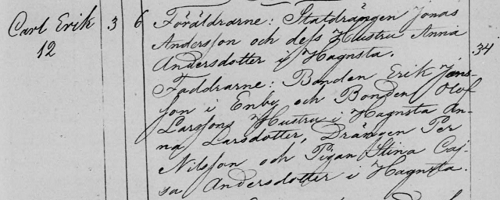 Carl Erik 3 6 Föräldrarne: Statdrängen Jonas
12 Andersson och dess Hustru Anna
Andersdotter i Hagnsta. 34
Faddrarne: Bonden Erik Jans-
son i Enby och Bonden Olof
Larssons Hustru i Hagnsta An-
na Larsdotter, Drängen Per
Nilsson och Pigan Stina Caj-
sa Andersdotter i Hagnsta.